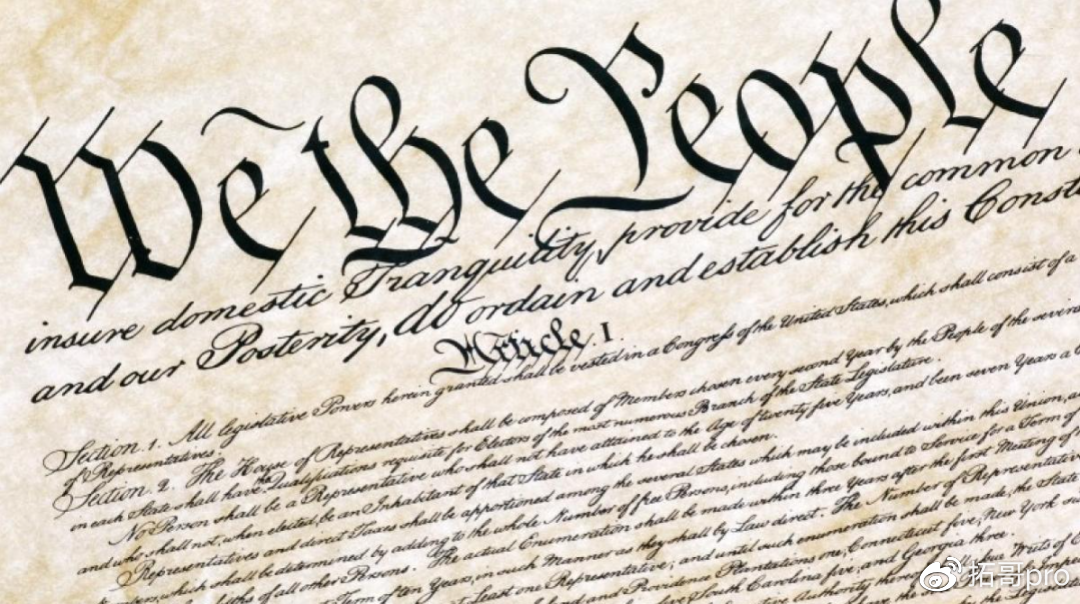 We the People
insure domestic Tranquility, provide for the common
and our Posterity, do ordain and establish this Const
Article I.
Section. 1. All legislative Powers herein granted shall be vested in a Congress of the United States, which shall consist of a
of Representatives.
Section. 2. The House of Representatives shall be composed of Members chosen every second Year by the People of the several
in each State shall have the Qualifications requisite for Electors of the most numerous Branch of the State Legislature.
No Person shall be a Representative who shall not have attained to the Age of twenty five Years, and been seven Years a
and who shall not, when elected, be an Inhabitant of that State in which he shall be chosen.
Representatives and direct Taxes shall be apportioned among the several States which may be included within this Union, and
which shall be determined by adding to the whole Number of free Persons, including those bound to Service for a Term of
of all other Persons. The actual Enumeration shall be made within three Years after the first Meeting of
Term of ten Years, in such Manner as they shall by Law direct. The Number of Representatives
at Least one Representative; and until such enumeration shall be made, the State
and Providence Plantations one, Connecticut five, New York
South Carolina five, and Georgia three.
Authority
Writs of
拓哥pro